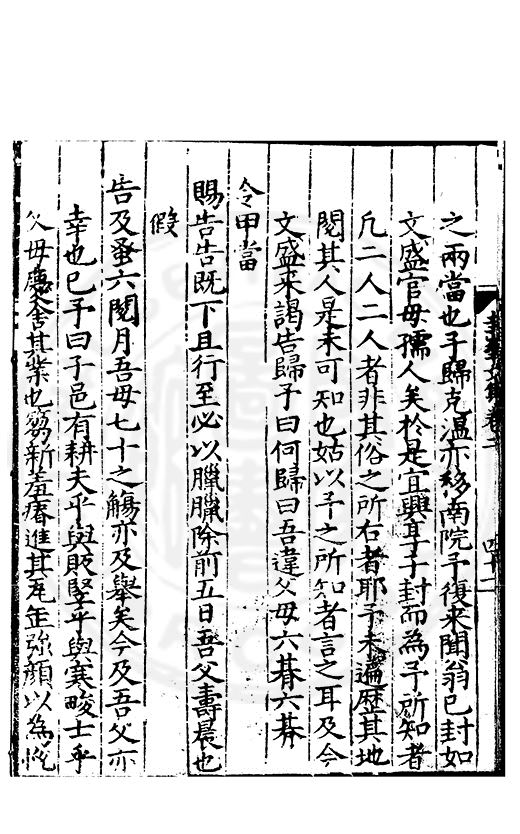 之兩當也予歸克溫亦移南院予復來聞翁已封如
文盛官母孺人矣於是宜興享子封而為予所知者
凡二人二人者非其俗之所右者耶予未遍歷其地
閱其人是未可知也姑以予之所知者言之耳及今
文盛來謁告歸予曰何歸曰吾違父母六朞六朞
令甲當
賜告告既下且行至必以臘臘除前五日吾父壽晨也
假
告及蚤六閱月吾母七十之觴亦及舉矣今及吾父亦
幸也已予曰子邑有耕夫乎與敗堅乎與寒畯士乎
父母處舍其業也芻新羞瘠進其瓦缶強顏以為悅
卷二
四十二